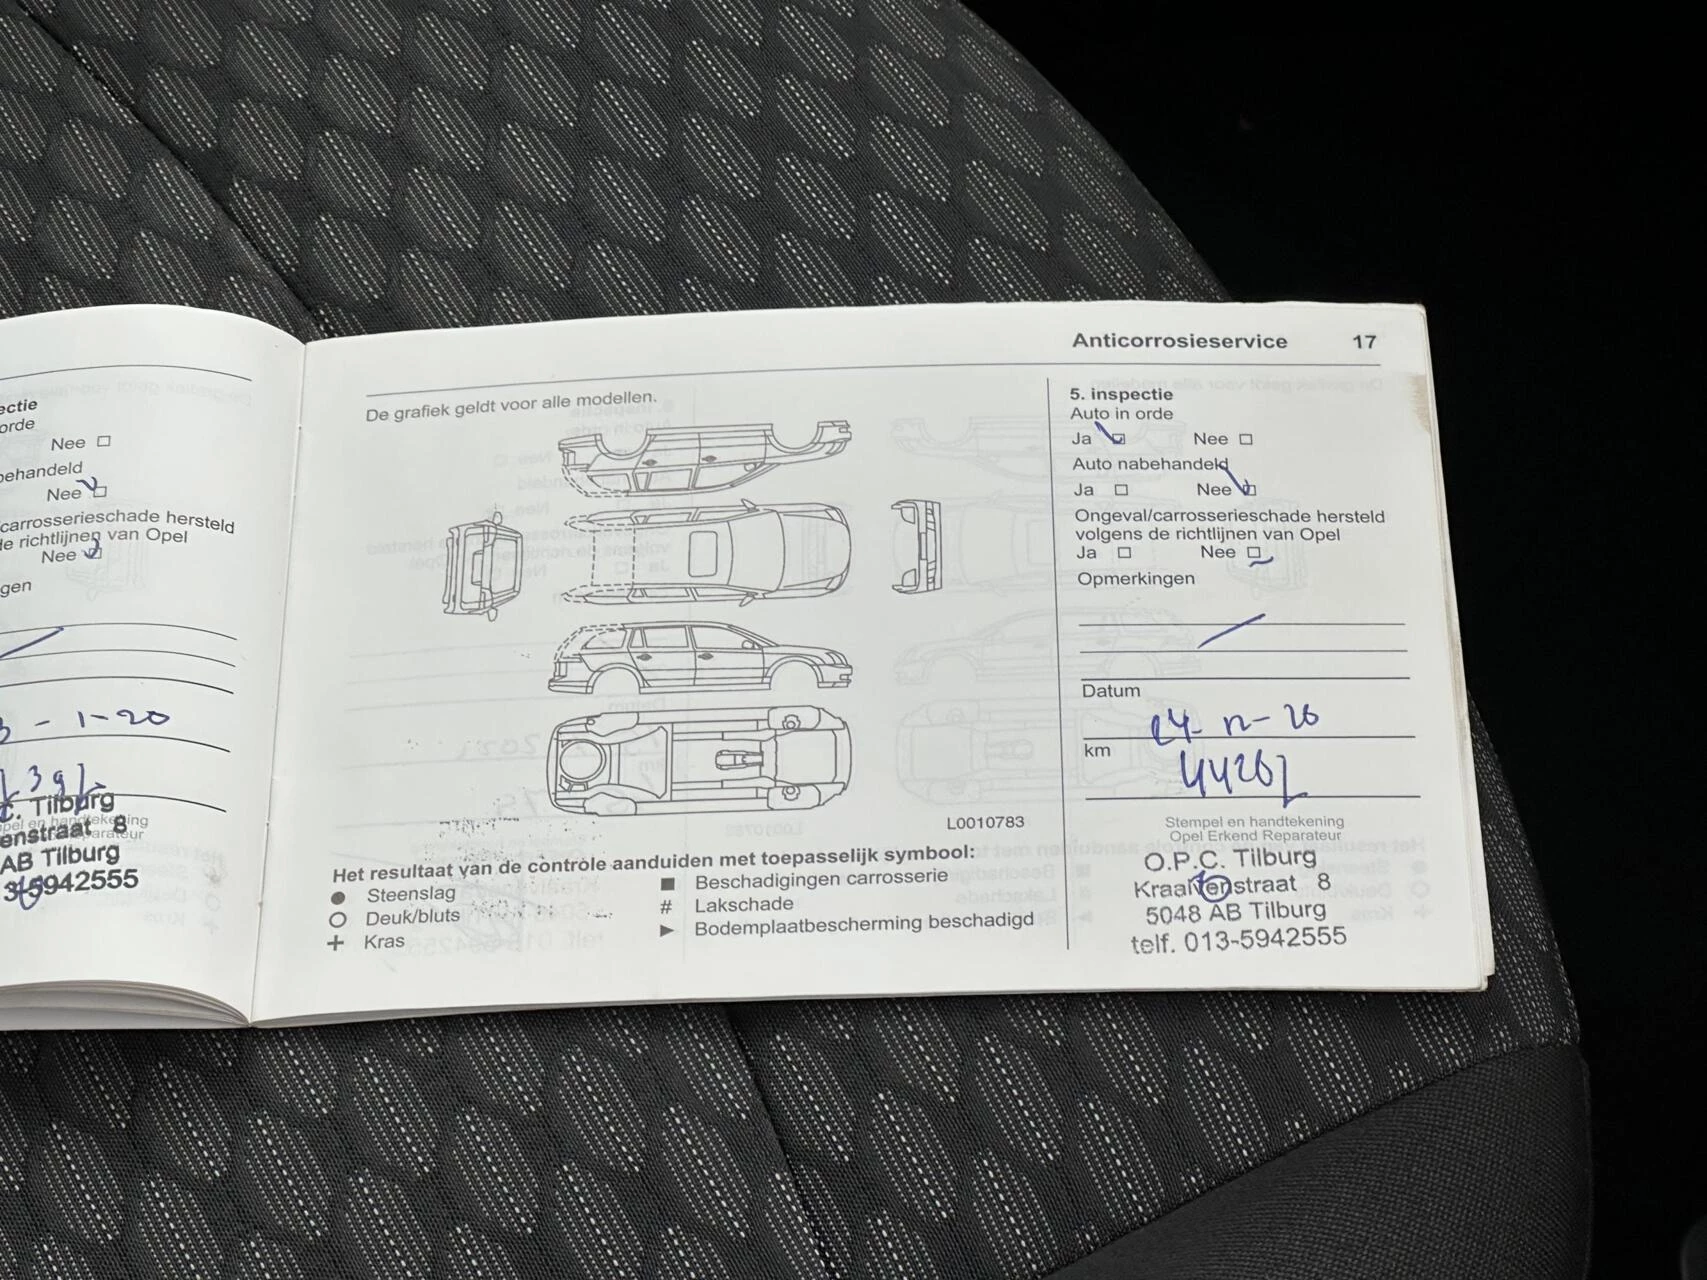 ectie
orde
Nee
behandeld
Nee
carrosserieschade hersteld
de richtlijnen van Opel
Nee
gen
- 1-20
C. Tilburg
enstraat 8
AB Tilburg
5942555
Anticorrosieservice 17
De grafiek geldt voor alle modellen.
L0010783
Het resultaat van de controle aanduiden met toepasselijk symbool:
● Steenslag
○ Deuk/bluts
+ Kras
■ Beschadigingen carrosserie
# Lakschade
► Bodemplaatbescherming beschadigd
5. inspectie
Auto in orde
Ja Nee
Auto nabehandeld
Ja Nee
Ongeval/carrosserieschade hersteld
volgens de richtlijnen van Opel
Ja Nee
Opmerkingen
Datum
km
Stempel en handtekening
Opel Erkend Reparateur
O.P.C. Tilburg
Kraalvenstraat 8
5048 AB Tilburg
telf. 013-5942555